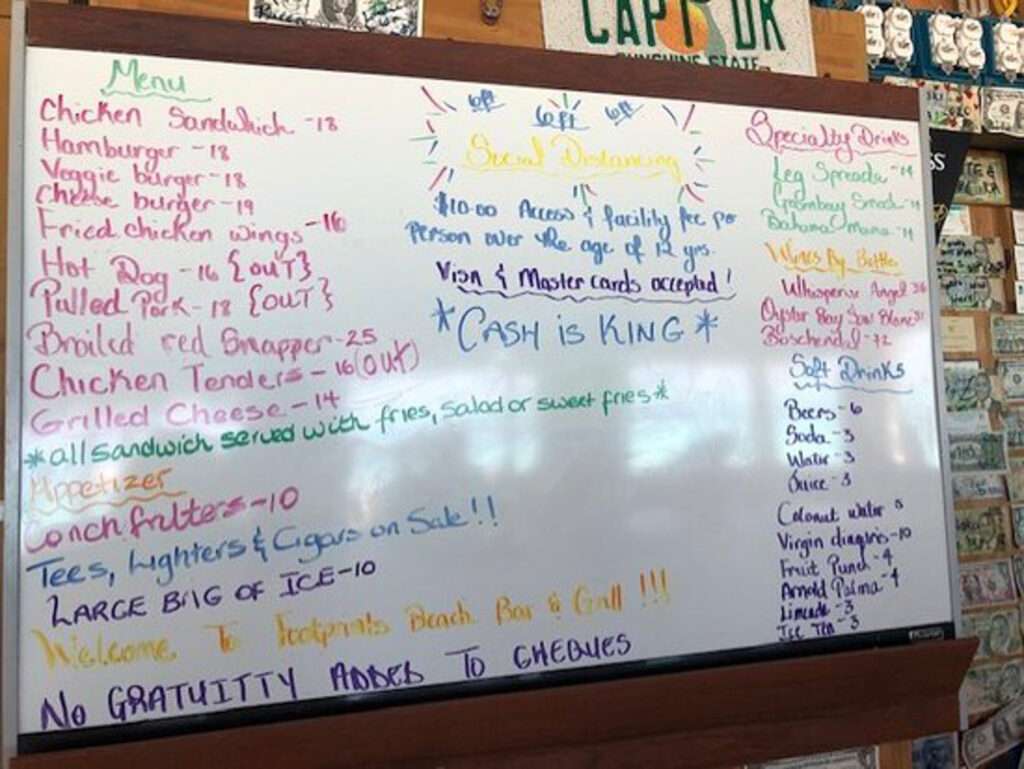 CAPT DK
SUNSHINE STATE
Menu
Chicken Sandwhich - 18
Hamburger - 18
Veggie burger - 18
Cheese burger - 19
Fried chicken wings - 16
Hot Dog - 16 {OUT}
Pulled Pork - 18 {OUT}
Broiled red Snapper - 25
Chicken Tenders - 16 (OUT)
Grilled Cheese - 14
*all sandwich served with fries, salad or sweet fries*
Appetizer
Conch fritters - 10
Tees, Lighters & Cigars on Sale!!
LARGE BAG OF ICE - 10
Welcome To Footprints Beach Bar & Grill !!!
NO GRATUITTY ADDED TO CHEQUES
6ft 6ft 6ft
Social Distancing
$10.00 Access & facility fee per
Person over the age of 12 yrs.
Visa & Master cards accepted!
*CASH is KING*
Specialty Drinks
Leg Spreader - 14
Goombay Smash - 14
Bahama Mama - 14
Wines By Bottle
Whisperin Angel
Oyster Bay Sauv Blanc
Boschendal - 72
Soft Drinks
Beers - 6
Soda - 3
Water - 3
Juice - 3
Coconut water 5
Virgin diaquiris - 10
Fruit Punch - 4
Arnold Palma - 4
Limeade - 3
Ice Tea - 3